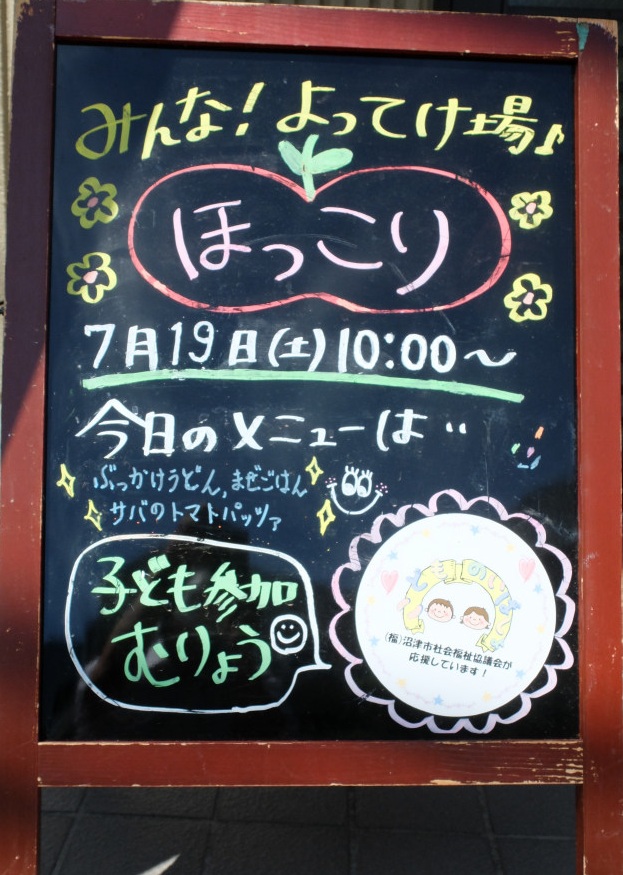 みんな!よってけ場♪
ほっこり
7月19日(土)10:00〜
今日のメニューは‥
ぶっかけうどん,まぜごはん
サバのトマトパッツァ
子ども参加
むりょう
(福)沼津市社会福祉協議会が
応援しています!